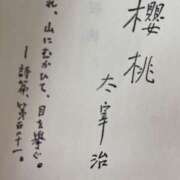 櫻桃
太宰治
れ、山にむかひて、目を擧ぐ。
――詩篇、第百二十一。